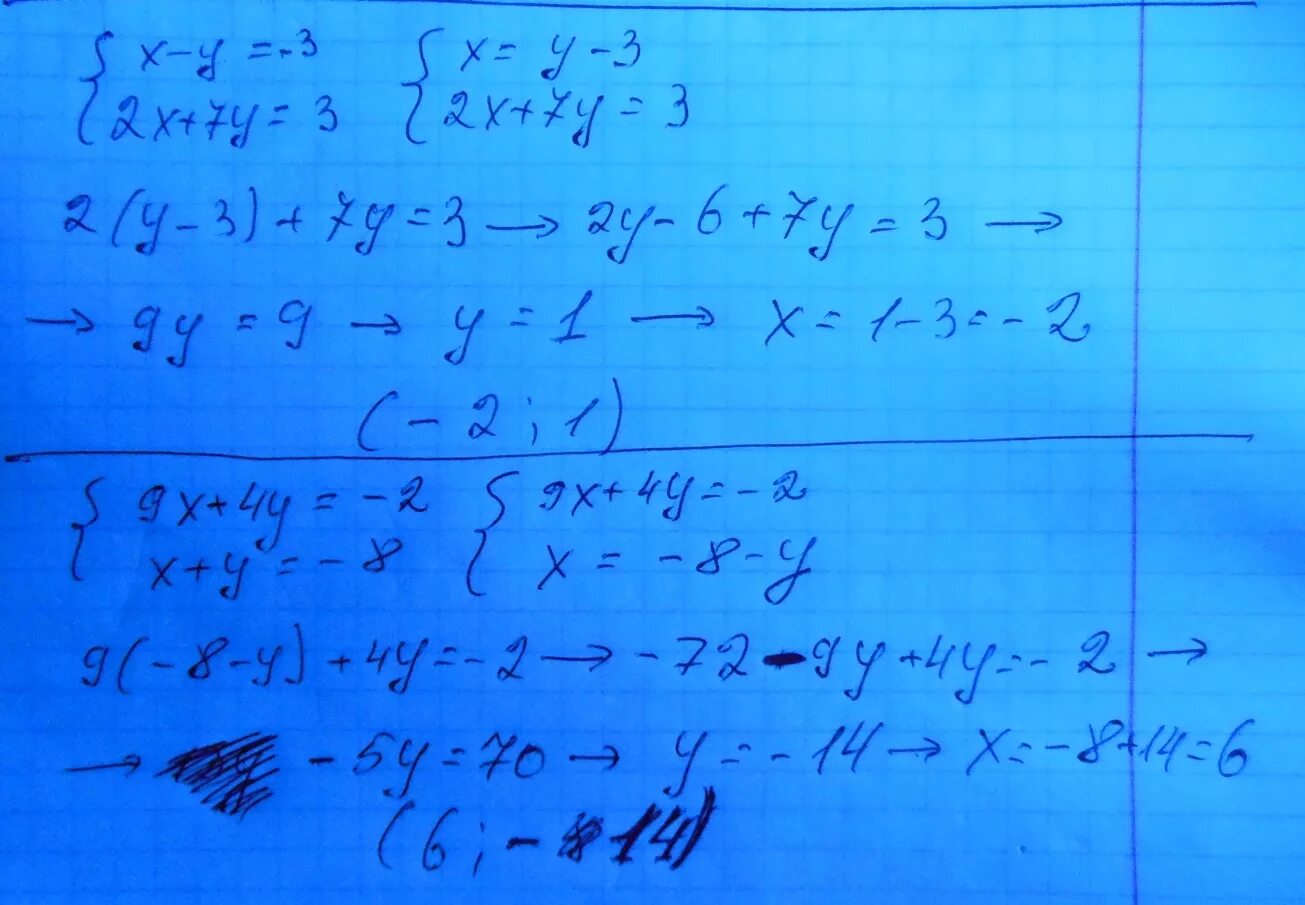 { x-y=-3 { x= y-3
{ 2x+7y=3 { 2x+7y=3
2(y-3)+7y=3 → 2y-6+7y=3 →
→ 9y=9 → y=1 → x=1-3=-2
(-2;1)
{ 9x+4y=-2 { 9x+4y=-2
{ x+y=-8 { x=-8-y
9(-8-y)+4y=-2 → -72-9y+4y=-2 →
→ -5y=70 → y=-14 → x=-8+14=6
(6;-14)